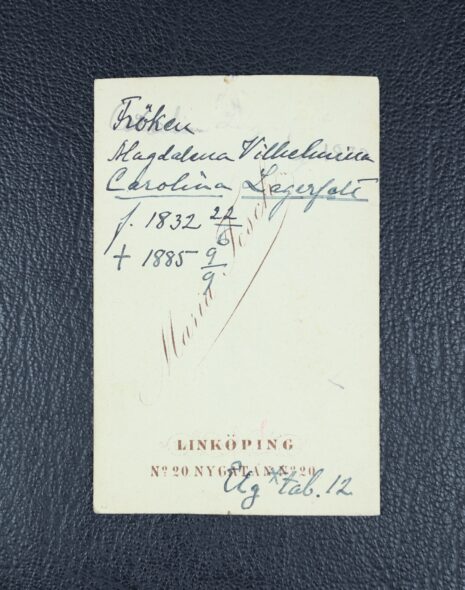 Fröken
Magdalena Vilhelmina
Carolina Lagerfelt
f. 1832 22/6
† 1885 9/9
Maria Tesch
LINKÖPING
Nº 20 NYGATAN Nº 20
tab. 12